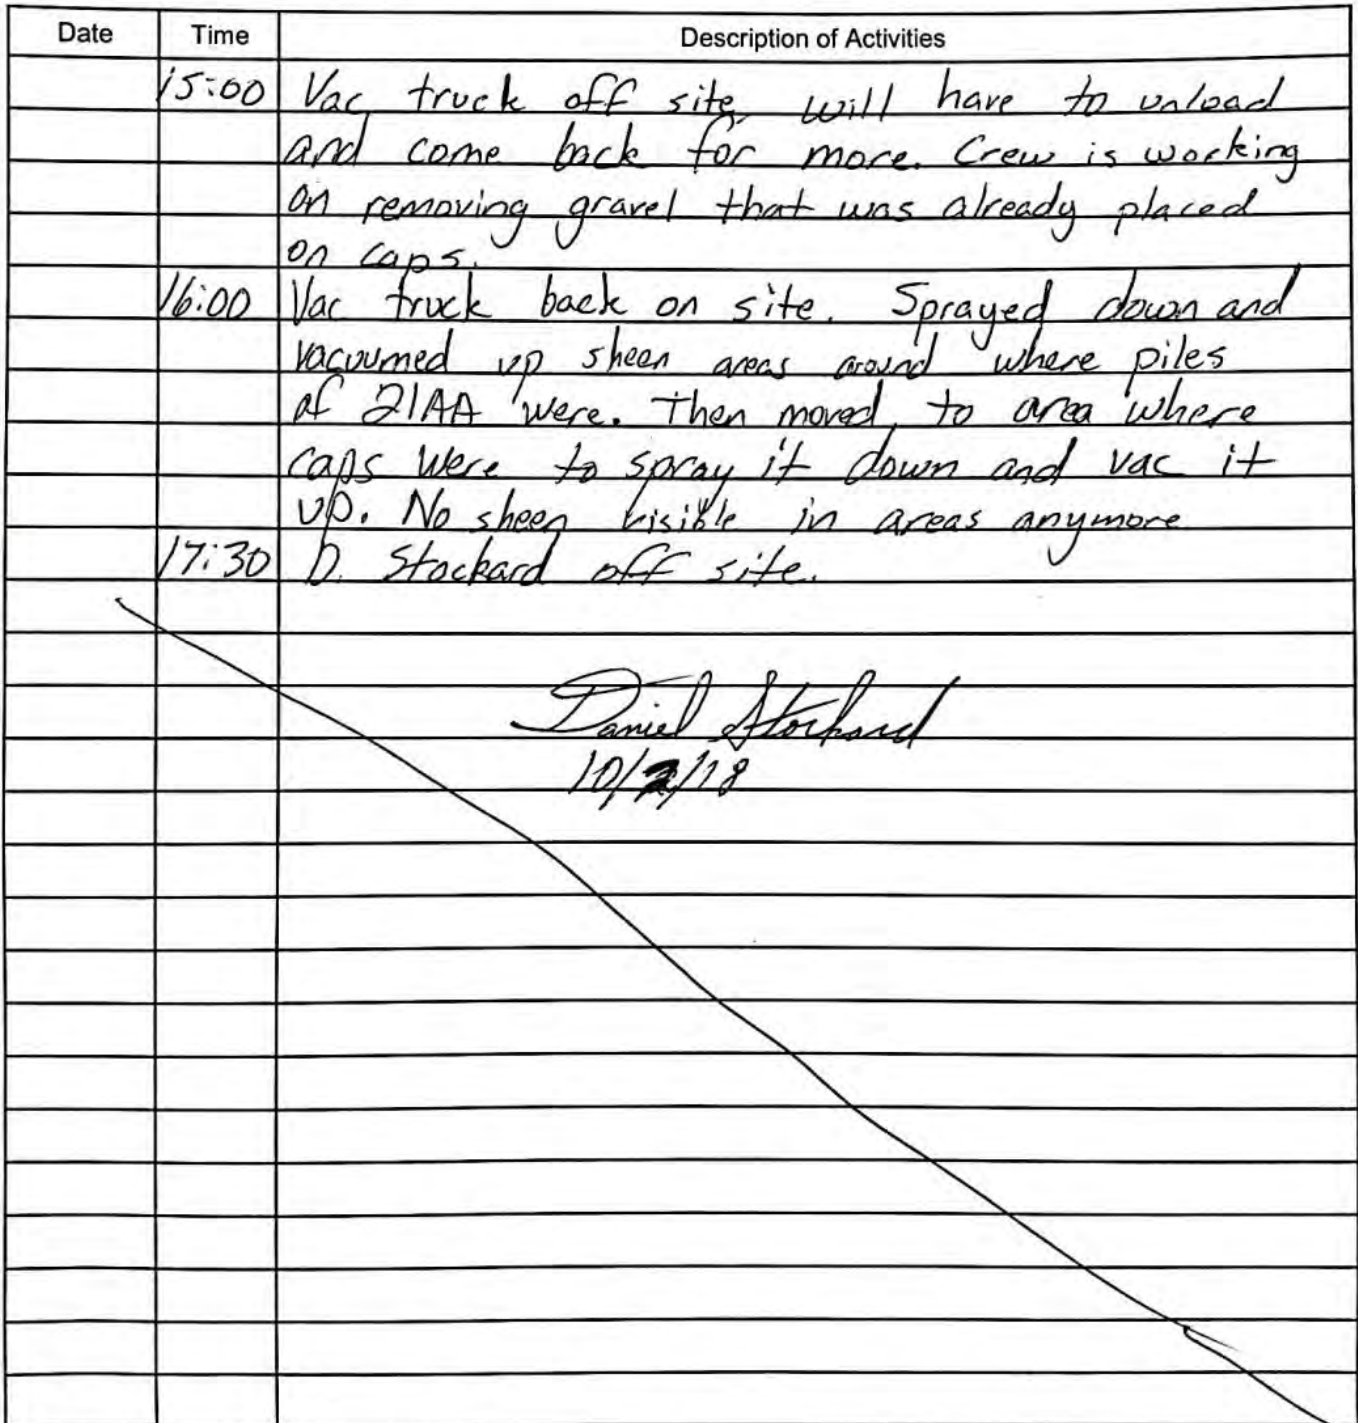 Date Time Description of Activities
15:00 Vac truck off site, will have to unload
and come back for more. Crew is working
on removing gravel that was already placed
on caps.
16:00 Vac truck back on site. Sprayed down and
vacuumed up sheen areas around where piles
of 21AA were. Then moved to area where
caps were to spray it down and vac it
up. No sheen visible in areas anymore
17:30 D. Stockard off site.
Daniel Stockard
10/2/18